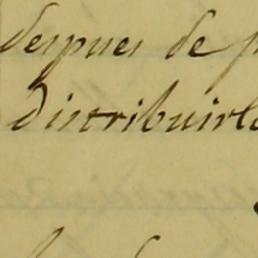 despues de
distribuirlo